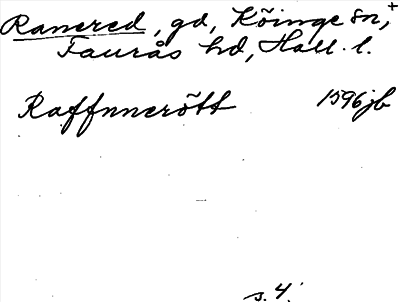 Ramered, gd, Köinge sn,+
Faurås hd, Hall. l.
Raffnnerött 1596 jb
s. 4.